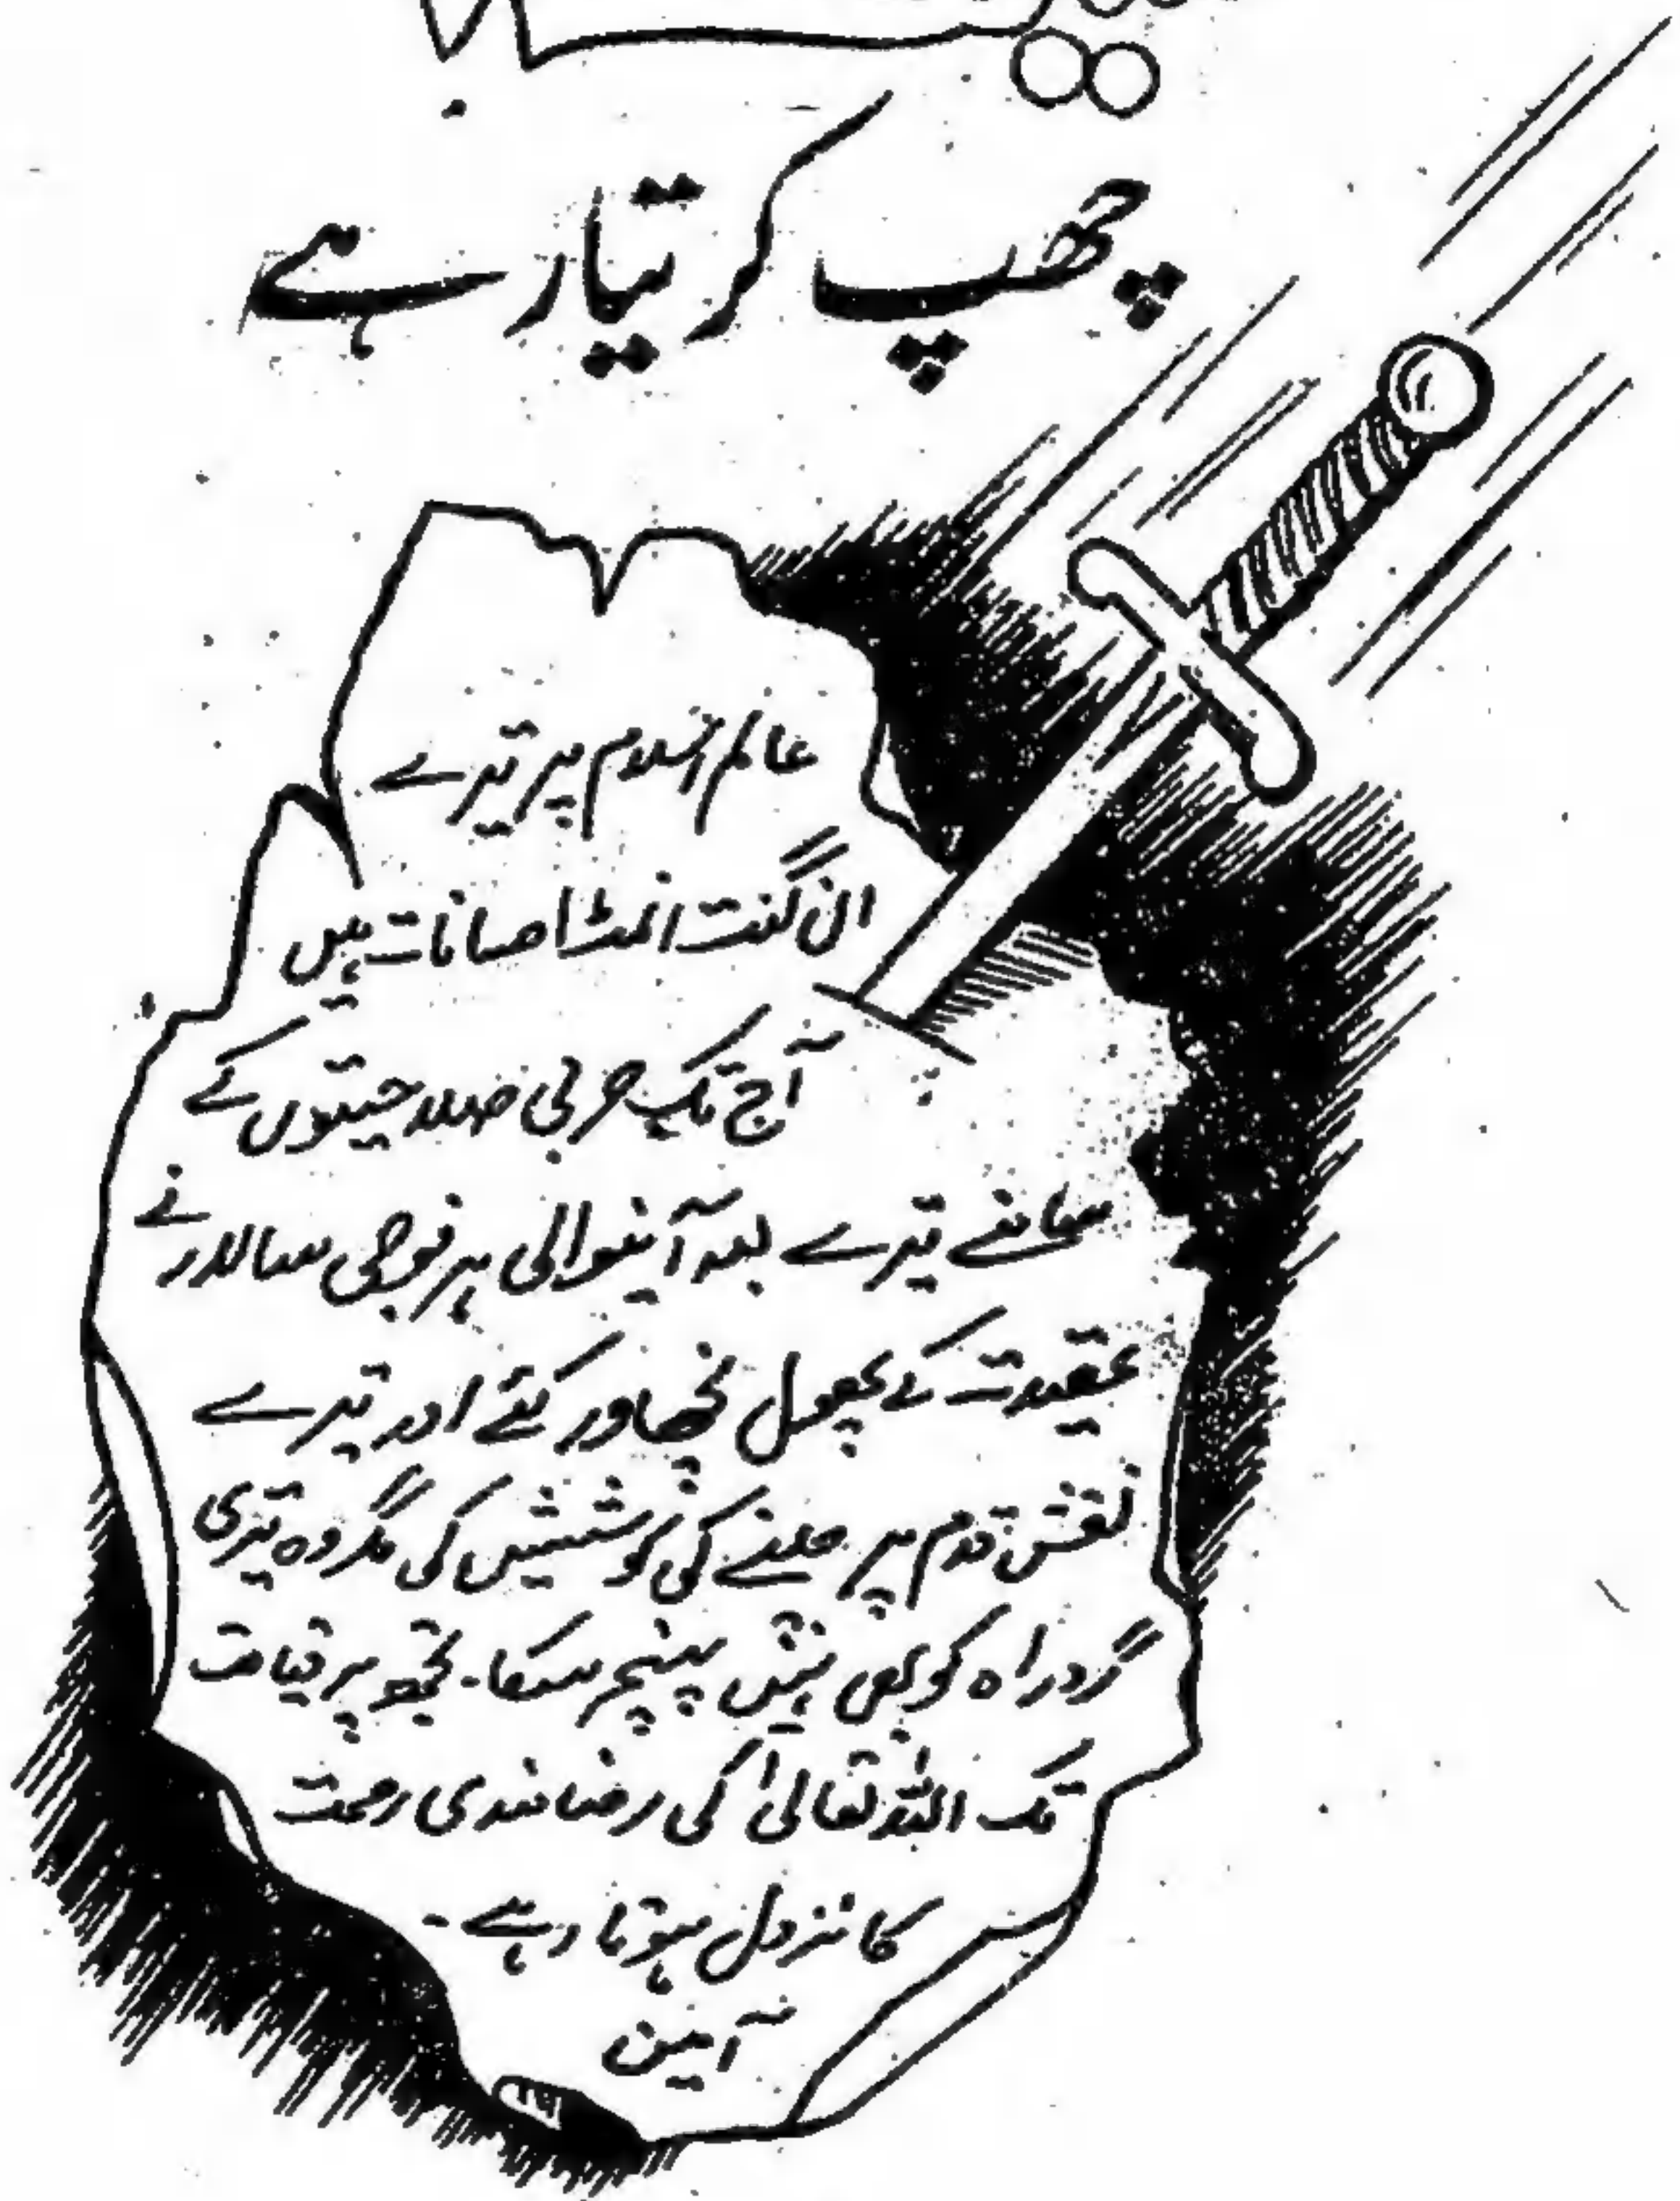 چھپ کر تیار ہے
عالم اسلام پر تیرے
ان گنت انمٹ احسانات ہیں
آج تک حربی صلاحیتوں کے
سامنے تیرے بعد آنیوالی ہر فوجی سالار نے
عقیدت کے پھول نچھاور کئے اور تیرے
نقش قدم پر چلنے کی کوششیں کی مگر وہ تیری
گرد راہ کو بھی نہیں پہنچ سکا۔ تجھ پر قیامت
تک اللہ تعالیٰ کی رضا مندی رحمت
کا نزول ہوتا رہے۔
آمین